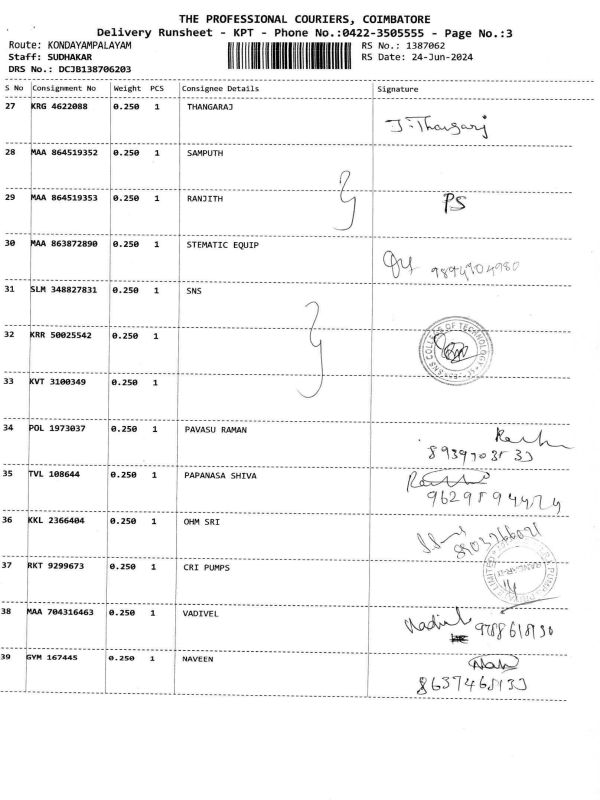 THE PROFESSIONAL COURIERS, COIMBATORE
Delivery Runsheet - KPT - Phone No.:0422-3505555 - Page No.:3
Route: KONDAYAMPALAYAM RS No.: 1387062
Staff: SUDHAKAR RS Date: 24-Jun-2024
DRS No.: DCJB138706203
S No Consignment No Weight PCS Consignee Details Signature
27 KRG 4622088 0.250 1 THANGARAJ
J. Thangaraj
28 MAA 864519352 0.250 1 SAMPUTH
29 MAA 864519353 0.250 1 RANJITH PS
30 MAA 863872890 0.250 1 STEMATIC EQUIP
31 SLM 348827831 0.250 1 SNS
32 KRR 50025542 0.250 1
SNS COLLEGE OF TECHNOLOGY
33 KVT 3100349 0.250 1
34 POL 1973037 0.250 1 PAVASU RAMAN
35 TVL 108644 0.250 1 PAPANASA SHIVA
36 KKL 2366404 0.250 1 OHM SRI
37 RKT 9299673 0.250 1 CRI PUMPS
38 MAA 704316463 0.250 1 VADIVEL
Vadivel
39 GYM 167445 0.250 1 NAVEEN
8637468133